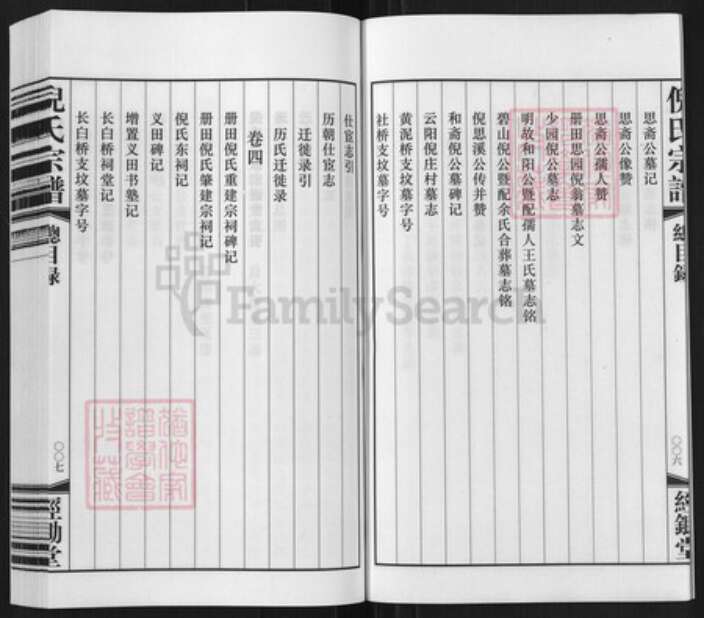 倪氏宗譜
總目録
〇〇六
經鋤堂
思斋公墓记
思斋公像赞
思斋公孺人赞
册田思园倪翁墓志文
少园倪公墓志
明故和阳公暨配孺人王氏墓志铭
碧山倪公暨配余氏合葬墓志铭
倪思溪公传并赞
和斋倪公墓碑记
云阳倪庄村墓志
黄泥桥支坟墓字号
社桥支坟墓字号
仕宦志引
历朝仕宦志
迁徙录引
历氏迁徙录
卷四
册田倪氏重建宗祠碑记
册田倪氏肇建宗祠记
倪氏东祠记
义田碑记
增置义田书塾记
长白桥祠堂记
长白桥支坟墓字号
倪氏宗譜
總目録
〇〇七
經鋤堂
FamilySearch